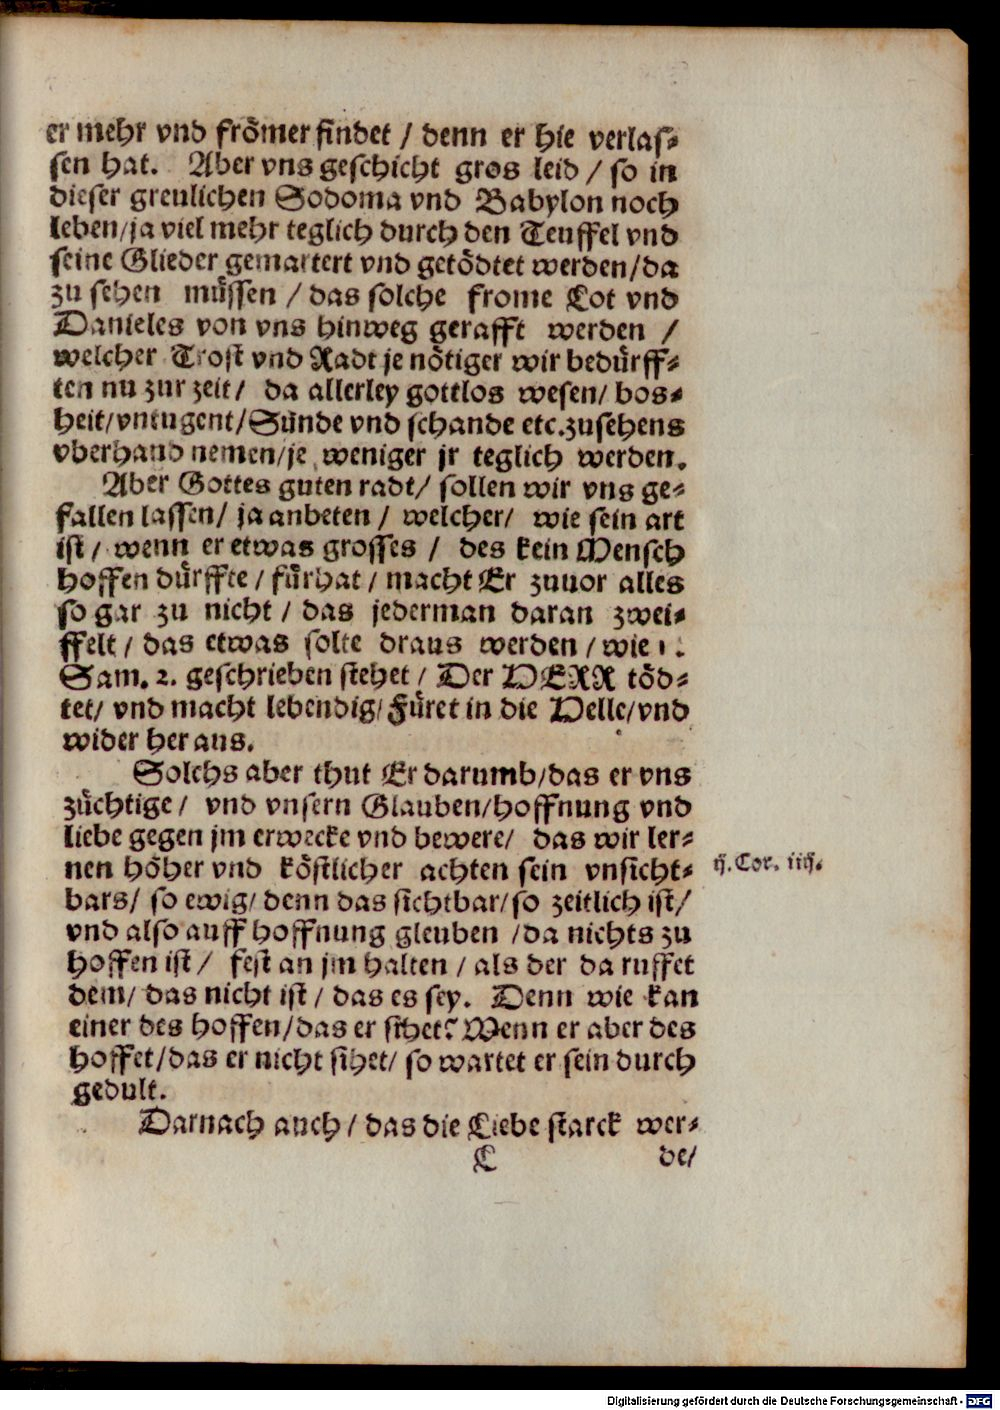 er mehr vnd frömer findet / denn er hie verlas-
sen hat. Aber vns geschicht gros leid / so in
dieser greulichen Sodoma vnd Babylon noch
leben/ja viel mehr teglich durch den Teuffel vnd
seine Glieder gemartert vnd getödtet werden/da
zu sehen müssen / das solche frome Lot vnd
Danieles von vns hinweg gerafft werden /
welcher Trost vnd Radt je nötiger wir bedürff-
ten nu zur zeit/ da allerley gottlos wesen/ bos-
heit/vntugent/Sünde vnd schande etc.zusehens
vberhand nemen/je weniger jr teglich werden.
Aber Gottes guten radt/ sollen wir vns ge-
fallen lassen/ ja anbeten / welcher/ wie sein art
ist / wenn er etwas grosses / des kein Mensch
hoffen dürffte / fürhat / macht Er zuuor alles
so gar zu nicht / das jederman daran zwei-
ffelt / das etwas solte draus werden / wie 1.
Sam. 2. geschrieben stehet / Der HERR töd-
tet/ vnd macht lebendig/ Füret in die Helle/vnd
wider her aus.
Solchs aber thut Er darumb/das er vns
züchtige / vnd vnsern Glauben/hoffnung vnd
liebe gegen jm erwecke vnd bewere/ das wir ler-
nen höher vnd köstlicher achten sein vnsicht-
bars/ so ewig/ denn das sichtbar/so zeitlich ist/
vnd also auff hoffnung gleuben /da nichts zu
hoffen ist / fest an jm halten / als der da ruffet
dem/ das nicht ist / das es sey. Denn wie kan
einer des hoffen/das er sihet? Wenn er aber des
hoffet/das er nicht sihet/ so wartet er sein durch
gedult.
Darnach auch / das die Liebe starck wer-
C de/
ij. Cor. iiij.
Digitalisierung gefördert durch die Deutsche Forschungsgemeinschaft - DFG